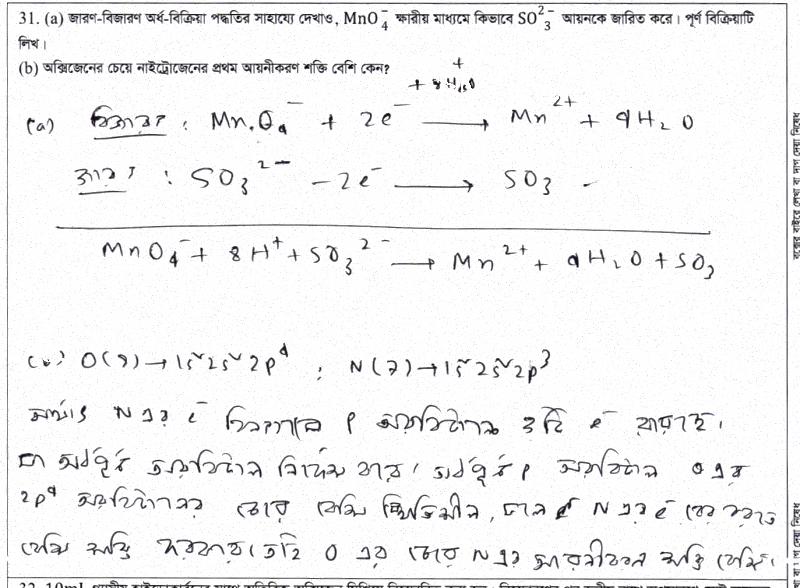 31. (a) জারণ-বিজারণ অর্ধ-বিক্রিয়া পদ্ধতির সাহায্যে দেখাও, MnO₄⁻ ক্ষারীয় মাধ্যমে কিভাবে SO₃²⁻ আয়নকে জারিত করে। পূর্ণ বিক্রিয়াটি
লিখ।
(b) অক্সিজেনের চেয়ে নাইট্রোজেনের প্রথম আয়নীকরণ শক্তি বেশি কেন?
(a) বিজারণ : MnO₄⁻ + 2e⁻ ⟶ Mn²⁺ + 4H₂O
জারণ : SO₃²⁻ − 2e⁻ ⟶ SO₃
MnO₄⁻ + 8H⁺ + SO₃²⁻ ⟶ Mn²⁺ + 4H₂O + SO₃
(b) O(8) → 1s² 2s² 2p⁴ ; N(7) → 1s² 2s² 2p³
অর্থাৎ N এর e⁻ বিন্যাসে p অরবিটালে 3টি e⁻ রয়েছে।
যা অর্ধপূর্ণ অরবিটাল নির্দেশ করে। অর্ধপূর্ণ p অরবিটাল O এর
2p⁴ অরবিটালের চেয়ে বেশি স্থিতিশীল, ফলে N এর e⁻ বের করতে
বেশি শক্তি দরকার। তাই O এর চেয়ে N এর আয়নীকরণ শক্তি বেশি।